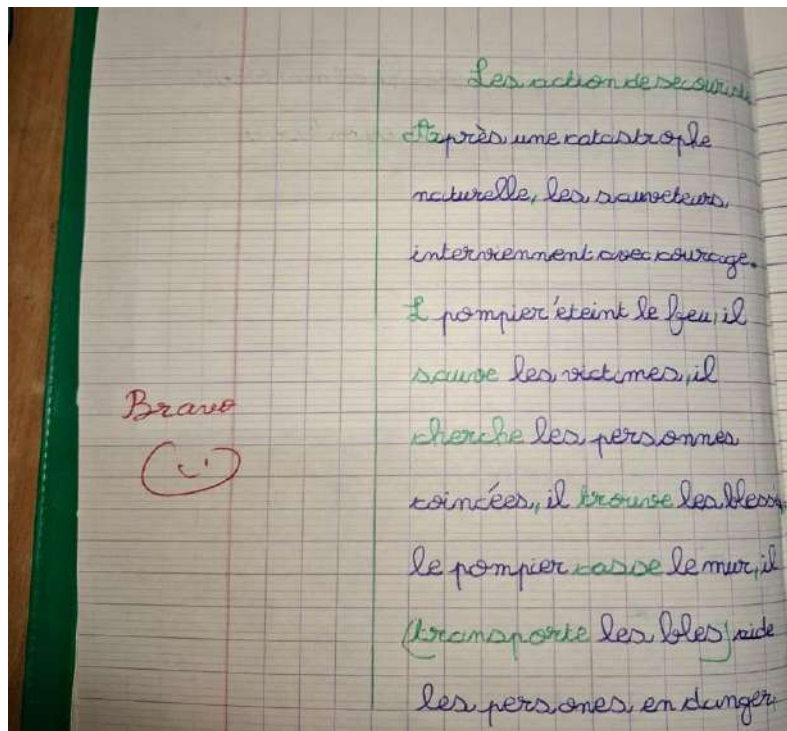 Les action de secouriste
Après une catastrophe
naturelle, les sauveteurs
interviennent avec courage.
L pompier éteint le feu, il
sauve les victimes, il
Bravo
cherche les personnes
coincées, il trouve les blessés
le pompier casse le mur, il
(transporte les bles) aide
les persones en danger